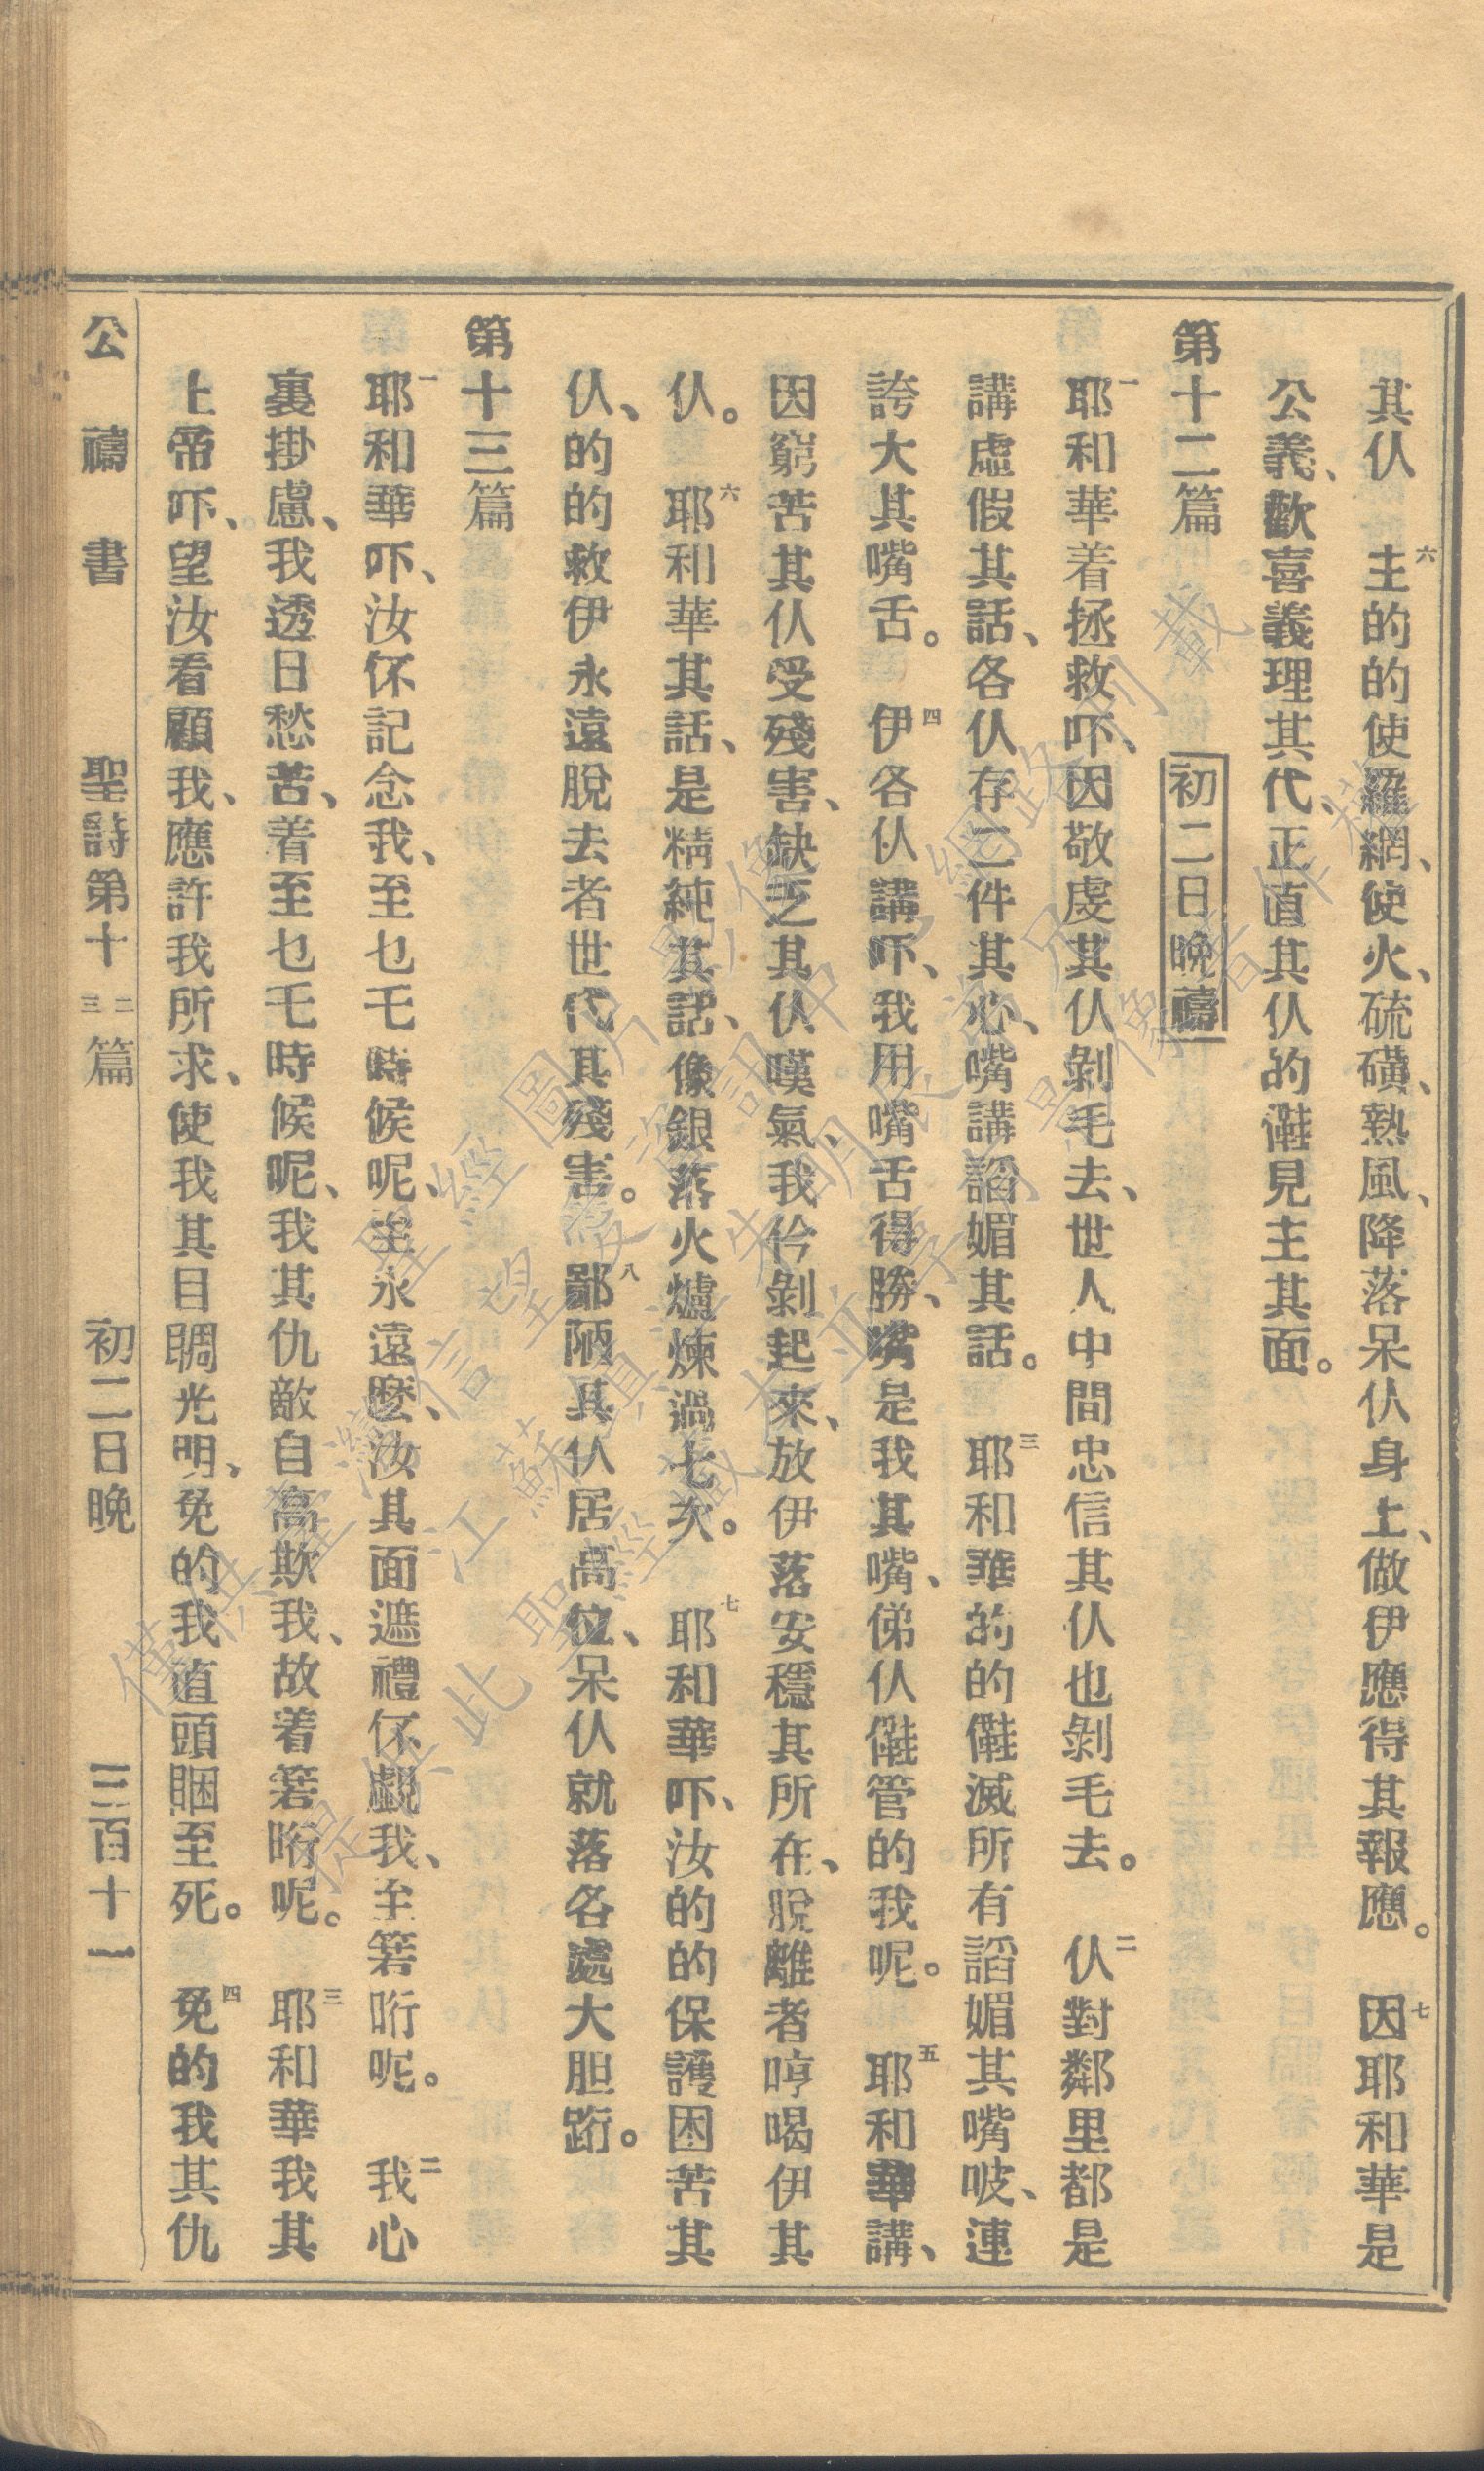 其仈　六主的的使羅網、使火、硫磺、熱風、降落呆仈身上、做伊應得其報應。　七因耶和華是
公義、歡喜義理其代、正直其仈的𠎠見主其面。
第十二篇　初二日晚禱
一耶和華着拯救吓、因敬虔其仈剝毛去、世人中間忠信其仈也剝毛去。　二仈對鄰里都是
講虛假其話、各仈存二件其心、嘴講諂媚其話。　三耶和華的的𠎠滅所有諂媚其嘴𠯋、連
誇大其嘴舌。　四伊各仈講吓、我用嘴舌得勝、嘴是我其嘴、俤仈𠎠管的我呢。　五耶和華講、
因窮苦其仈受殘害、缺乏其仈嘆氣、我仱剝起來、放伊落安穩其所在、脫離者哼喝伊其
仈。　六耶和華其話、是精純其話、像銀落火爐煉過七次。　七耶和華吓、汝的的保護困苦其
仈、的的救伊永遠脫去者世代其殘害。　八鄙陋其仈居高位、呆仈就落各處大胆跢。
第十三篇
一耶和華吓、汝伓記念我、至乜乇時候呢、至永遠麽、汝其面遮禮伓覷我、至箬昈呢。　二我心
裏掛慮、我透日愁苦、着至乜乇時候呢、我其仇敵自高欺我、故着箬昈呢。　三耶和華我其
上帝吓、望汝看顧我、應許我所求、使我其目睭光明、免的我直頭睏至死。　四免的我其仇
公禱書　聖詩第十二三篇　初二日晚　三百十一
僅供臺灣信望愛聖經圖片見證網路刊載